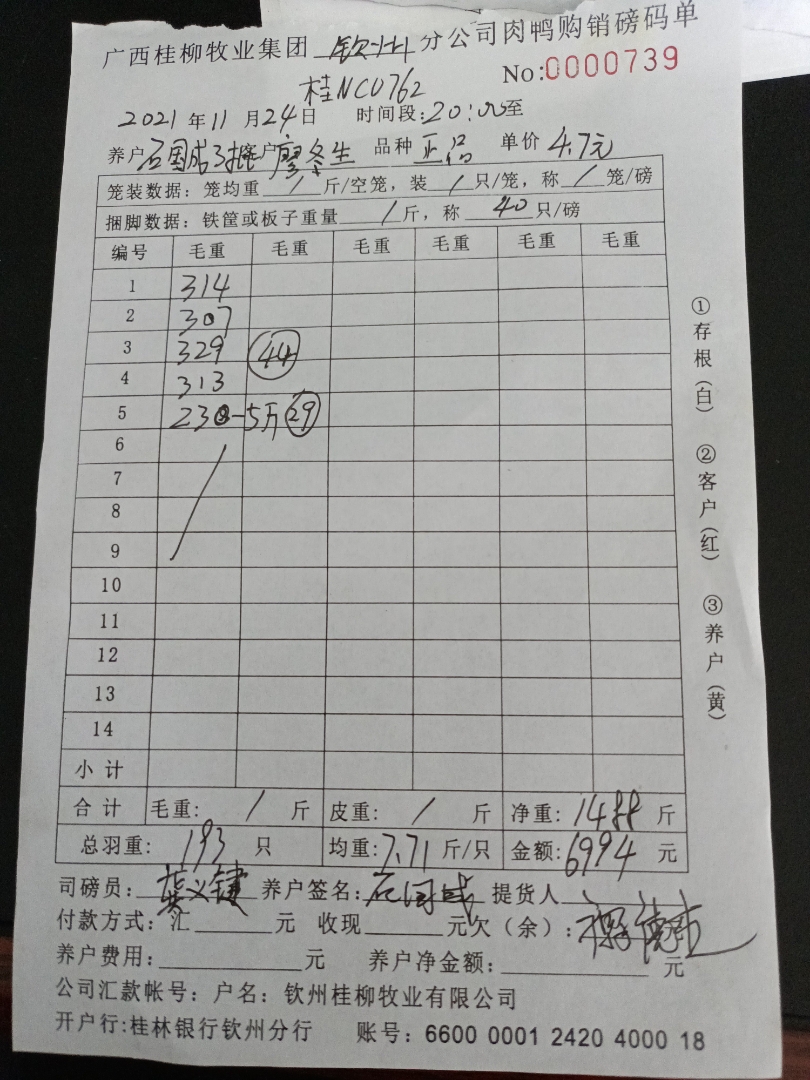 广西桂柳牧业集团 钦州 分公司肉鸭购销磅码单
桂NC0762 No:0000739
2021 年 11 月 24 日 时间段:20:00至
养户 石国成 客户 廖冬生 品种 正品 单价 4.7元
笼装数据: 笼均重 / 斤/空笼, 装 / 只/笼, 称 / 笼/磅
捆脚数据: 铁筐或板子重量 / 斤, 称 40 只/磅
编号 毛重 毛重 毛重 毛重 毛重 毛重
1 314
2 307
3 329 44
4 313
5 230-5斤 29
6
7
8
9
10
11
12
13
14
小计
合计 毛重: / 斤 皮重: / 斤 净重: 1488 斤
总羽重: 193 只 均重: 7.71 斤/只 金额: 6994 元
司磅员: 养户签名: 石国成 提货人
付款方式: 汇 元 收现 元欠(余):
养户费用: 元 养户净金额: 元
公司汇款帐号: 户名: 钦州桂柳牧业有限公司
开户行:桂林银行钦州分行 账号: 6600 0001 2420 4000 18
①存根(白) ②客户(红) ③养户(黄)